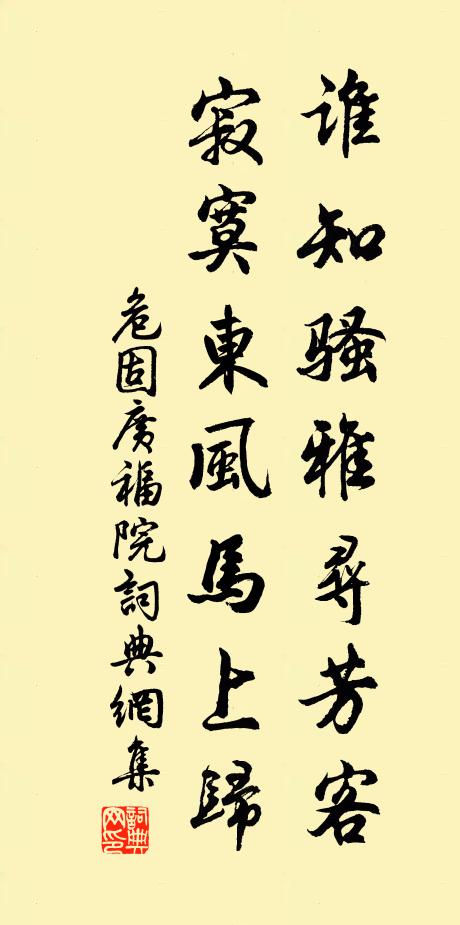 谁知騷雅尋芳客
寂寞東風馬上歸
危固廣福院詞典網集
詞典网印